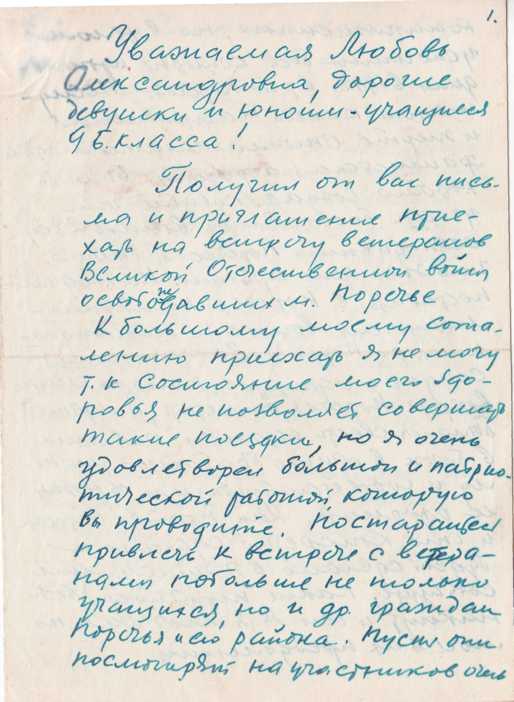 1.
Уважаемая Любовь
Александровна, дорогие
девушки и юноши - учащиеся
9 б. класса!
Получил от вас пись-
ма и приглашение прие-
хать на встречу ветеранов
Великой Отечественной войны
освобождавших м. Поречье
К большому моему сожа-
лению приехать я не могу
т.к состояние моего здо-
ровья не позволяет совершать
такие поездки, но я очень
удовлетворен большой и патрио-
тической работой, которую
вы проводите. Постарайтесь
привлечь к встрече с ветера-
нами побольше не только
учащихся, но и др. граждан
Поречья и его района. Пусть они
посмотрят на участников очень